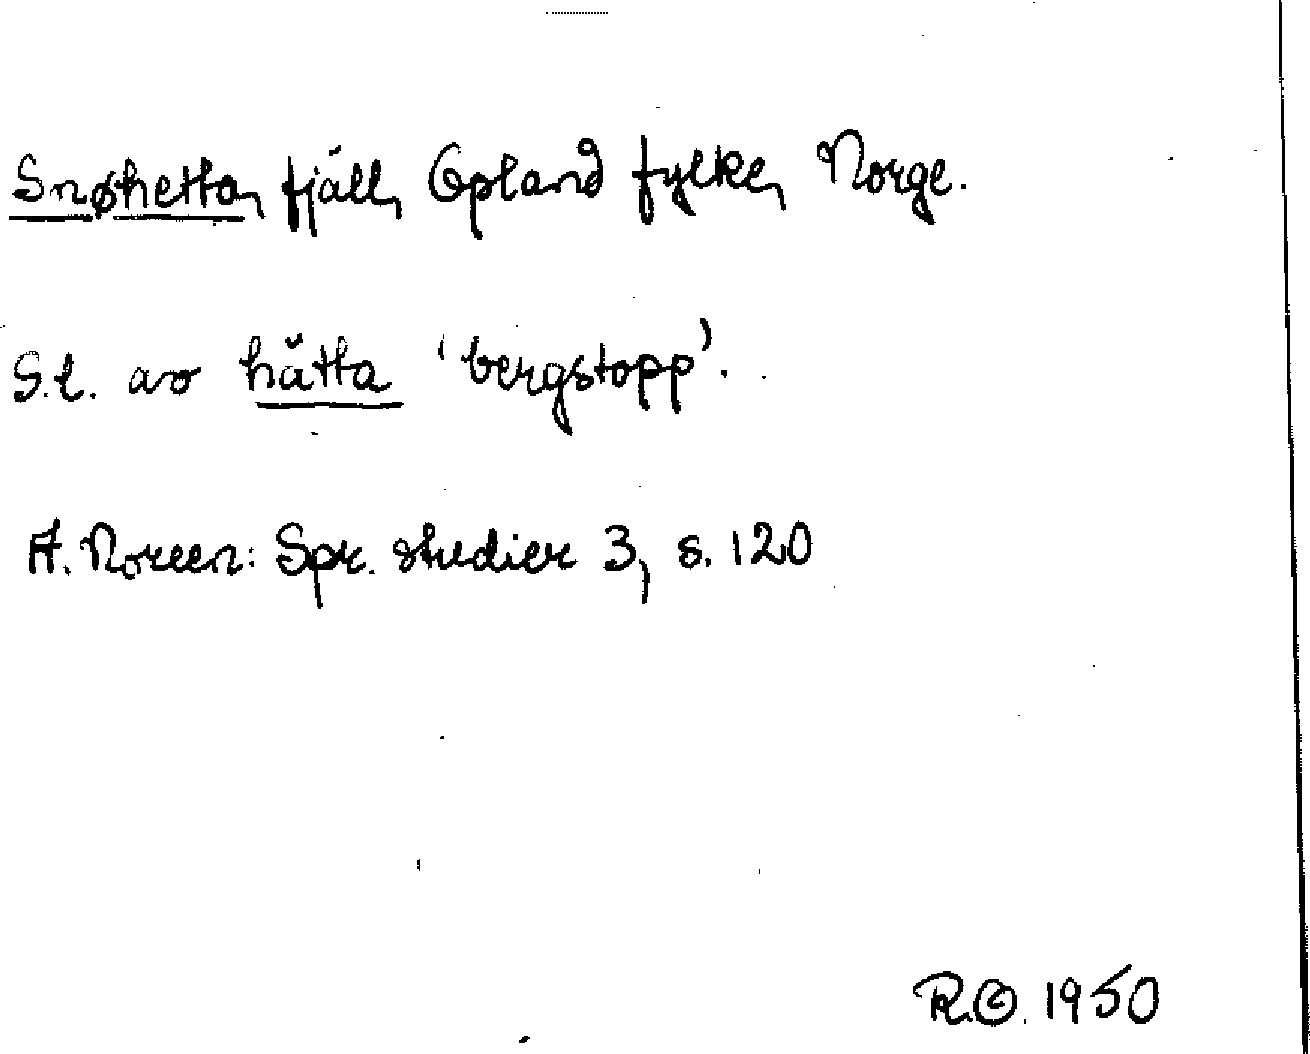 Snøhetta, fjäll, Opland fylke, Norge.
S.t. av hätta 'bergstopp'.
A. Noreen: Spr. studier 3, s. 120
R.O. 1950